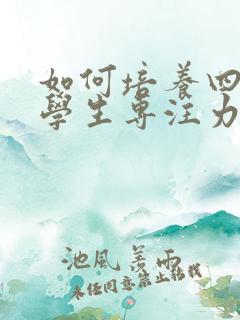 如何培養四
學生專注力
池風善雨
未经同意禁止转载